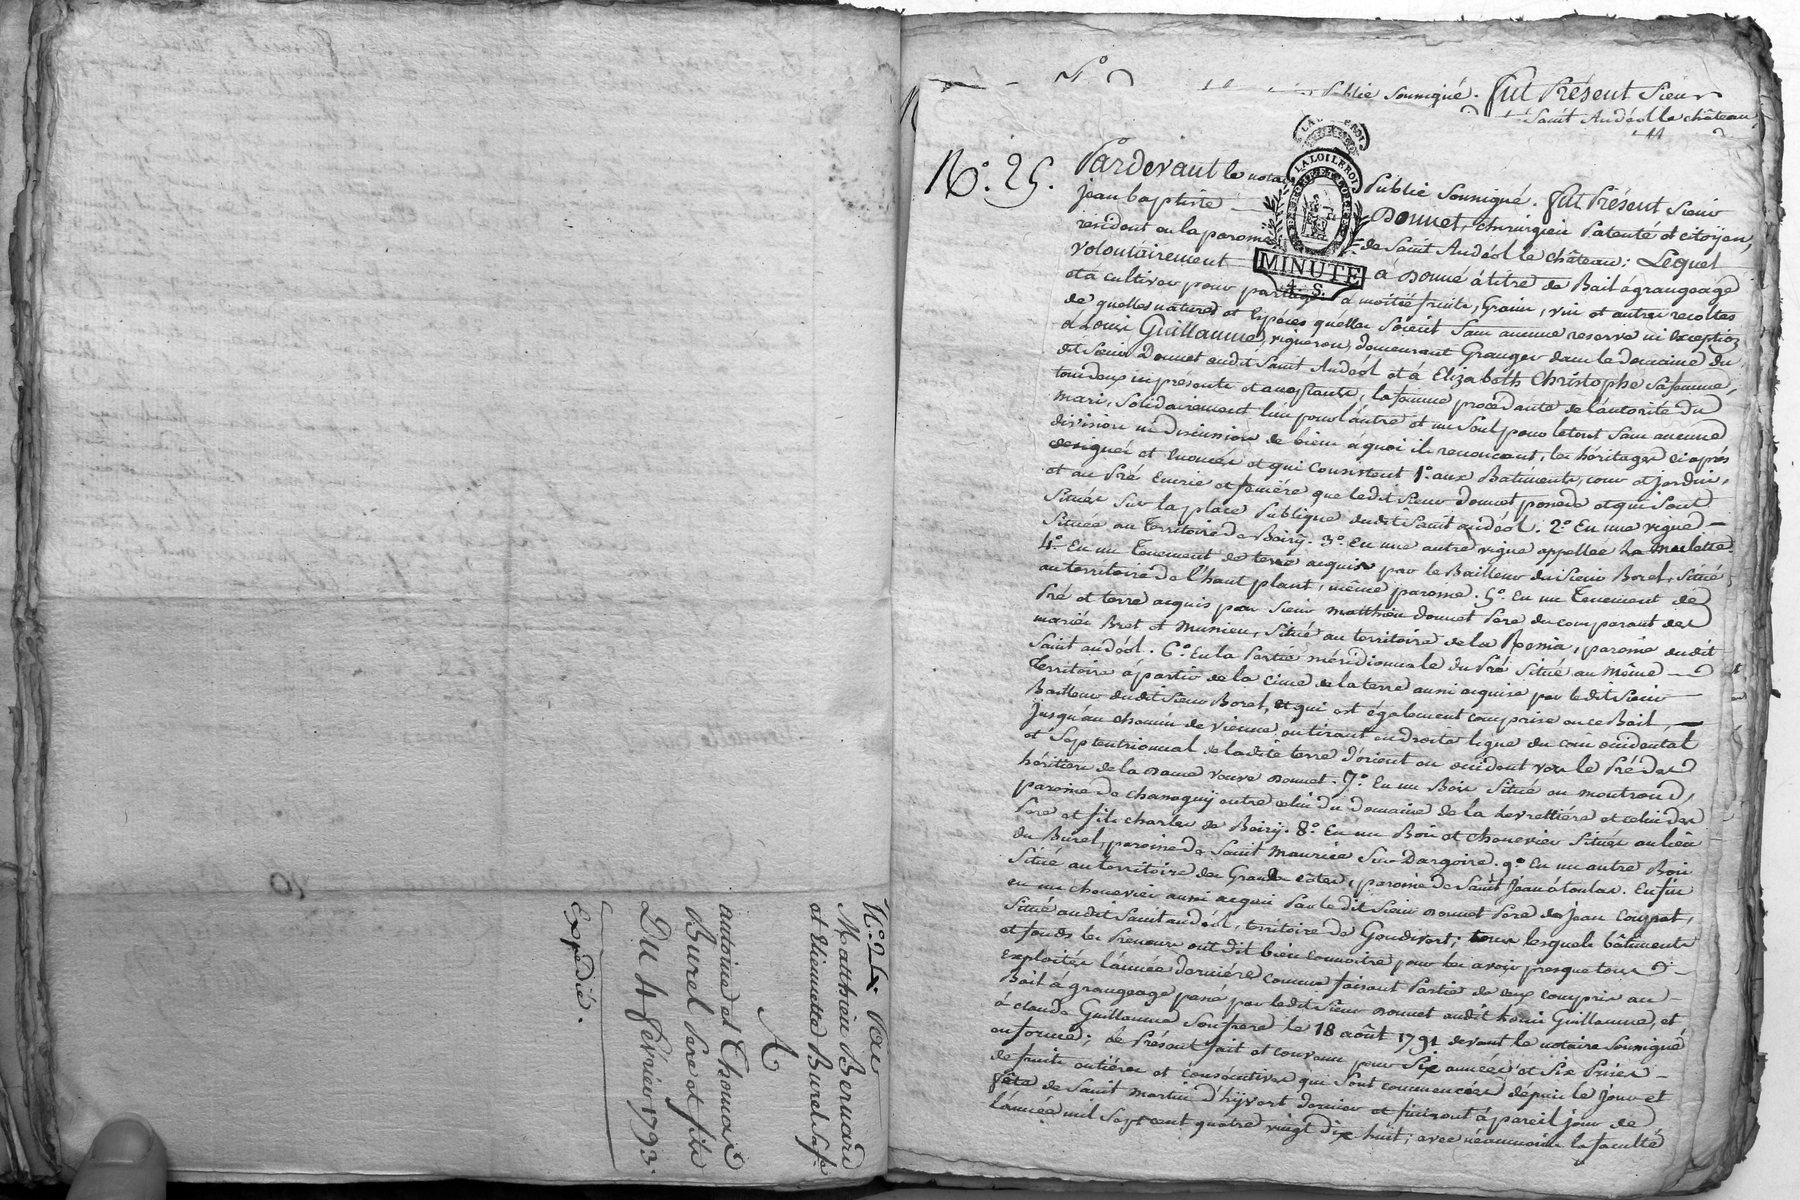 N.° 24. Par
Matthieu Bernard
et Etiennette Burel Sa fe
A
antoine et Thomas
Burel Pere et fils
Du 4 fevrier 1793.
Expédié.
Publié Sousigné. fut Présent Sieur
Saint Andéol le château
N.° 25.
Pardevant le notaire Public Sousigné. fut Présent Sieur
jean baptiste Donnet, chirurgien Patenté et citoÿen,
résident en la paroisse de Saint Andéol le château; Lequel
volontairement a Donné à titre de Bail à grangeage
et à cultiver pour partage à moitié fruits, Grain, vin et autres recoltes
de quelles natures et Espéces quelles soient Sans aucune reserve ni exception
à Louis Guillaume, vigneron, demeurant Granger dans le domaine du
dit Sieur Donnet audit Saint Andéol et à Elizabeth Christophe sa femme,
tous deux ici présents et acceptants, la femme procédante de l'autorité du
mari, Solidairement l'un pour l'autre et un Seul pour le tout Sans aucune
division ni discussion de biens à quoi ils renoncent, les héritages ci après
designés et Enoncés et qui Consistent 1.° aux Batiments, cour et jardin,
et au Pré Ecurie et feniére que ledit Sieur donnet posséde et qui sont
Situés Sur la place Publique dudit Saint andéol. 2.° En une vigne
Située au Territoire de Boiry. 3.° En une autre vigne appellée La Merlette
4.° En un Tenement de terre acquis par le Bailleur du Sieur Borel, Situé
au territoire de l'haut plant, même paroisse. 5.° En un Tenement de
Pré et terre acquis par Sieur Matthieu donnet Pere du comparant des
mariés Bret et Munieu, Situé au territoire de la Romia, paroisse dudit
Saint andéol. 6.° En la Partie méridionnale du Pré Situé au Même
Territoire à partir de la cime de la terre aussi acquise par ledit Sieur
Bailleur dudit Sieur Borel, et qui est également comprise en ce Bail
Jusqu'au chemin de vienne, en tirant en droite ligne du coin occidental
et Septentrionnal de ladite terre d'orient en occident vers le Pré des
héritiers de la Dame veuve Donnet. 7.° En un Bois Situé en montrond,
paroisse de chassagny entre celui du domaine de la Levrettiére et celui des
Pere et fils charles de Boiry. 8.° En un Bois et chenevier Situés au lieu
du Burel, paroisse de Saint Maurice Sur Dargoire. 9.° En un autre Bois
Situé au territoire des Grandes côtes, paroisse de Saint Jean à toulas. Enfin
en un chenevier aussi acquis Par ledit Sieur Donnet Pere de Jean Coignet,
Situé audit Saint andéol, territoire de Goudivert; tous lesquels bâtiments
et fonds les Preneurs ont dit bien connoitre pour les avoir presque tous
exploités l'année derniére comme faisant Partie de ceux compris au
Bail à grangeage passé par ledit Sieur Donnet audit Louis Guillaume, et
à claude Guillaume Son frere le 18 août 1791 devant le notaire Sousigné
en forme; le Présent fait et convenu pour Six années et Six Prises
de fruits entiéres et consécutives qui Sont commencées dépuis le Jour et
fête de Saint Martin d'hÿvert dernier et finiront à pareil jour de
l'année mil Sept cent quatre vingt dix huit; avec néanmoins la faculté
LA LOI LE ROI
MINUTE
4. S.